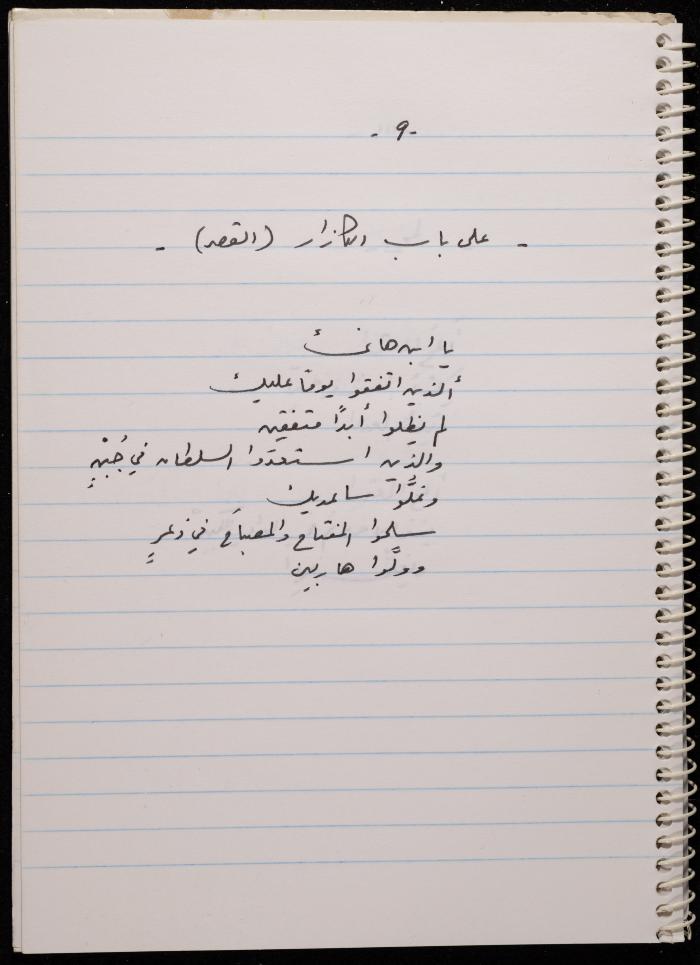 - 9 -
- على باب الكازار (القصر) -
يا ابن هانئ
ألذين اتفقوا يومًا عليك
لم يظلوا أبدًا متفقين
والذين استعدَوا السلطان في جُبْنٍ
وغلُّوا ساعديكَ
سلموا المفتاح والمصباح في ذعرٍ
وولَّوا هاربين